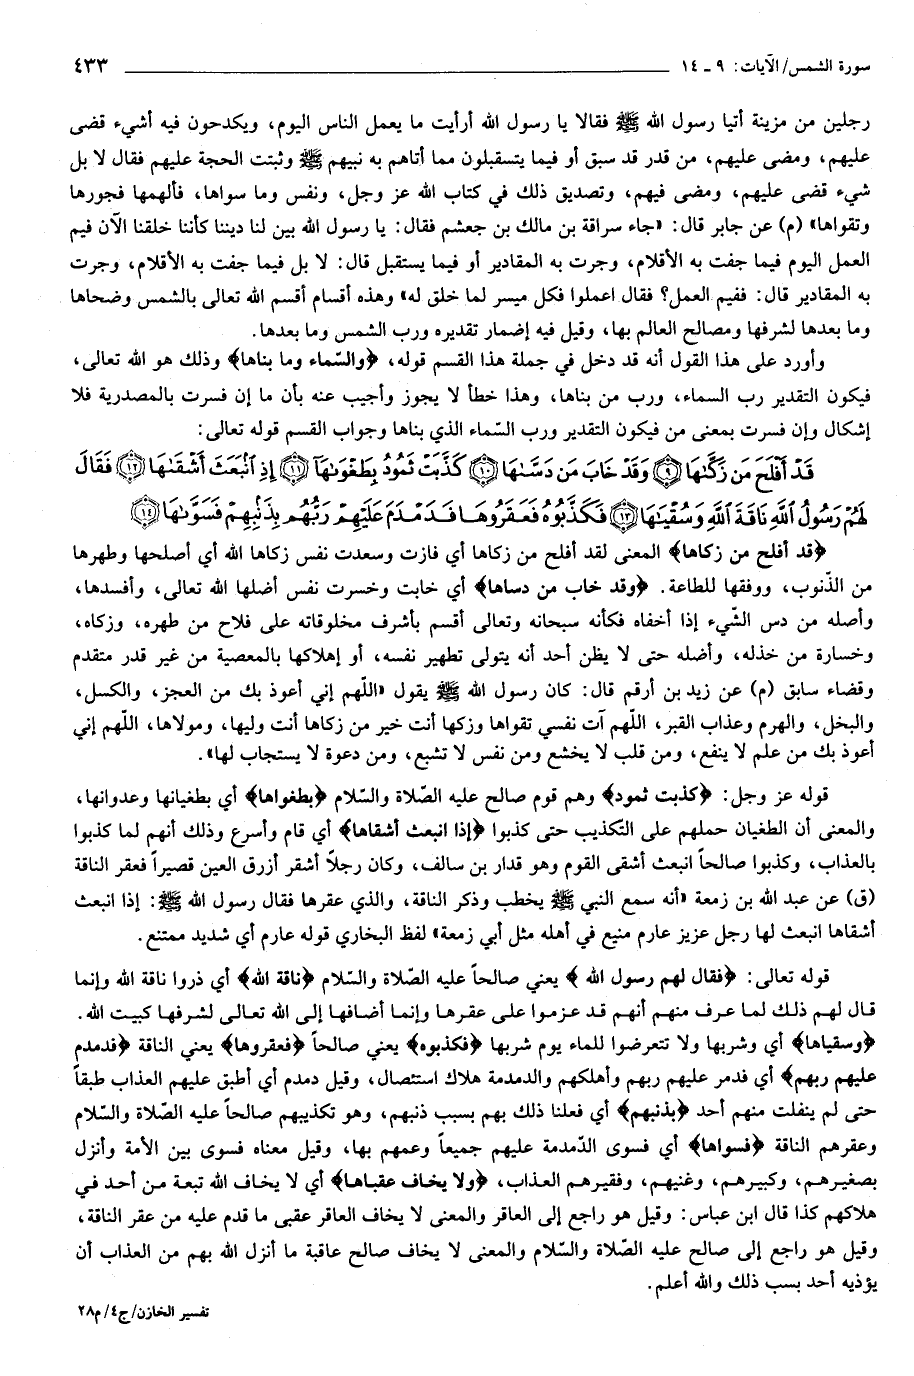 سورة الشمس/الآيات: ٩ ـ ١٤ ٤٣٣
رجلين من مزينة أتيا رسول الله ﷺ فقالا يا رسول الله أرأيت ما يعمل الناس اليوم، ويكدحون فيه أشيء قضى
عليهم، ومضى عليهم، من قدر قد سبق أو فيما يتسقبلون مما أتاهم به نبيهم ﷺ وثبتت الحجة عليهم فقال لا بل
شيء قضى عليهم، ومضى فيهم، وتصديق ذلك في كتاب الله عز وجل، ونفس وما سواها، فألهمها فجورها
وتقواها» (م) عن جابر قال: «جاء سراقة بن مالك بن جعشم فقال: يا رسول الله بين لنا ديننا كأننا خلقنا الآن فيم
العمل اليوم فيما جفت به الأقلام، وجرت به المقادير أو فيما يستقبل قال: لا بل فيما جفت به الأقلام، وجرت
به المقادير قال: ففيم العمل؟ فقال اعملوا فكل ميسر لما خلق له» وهذه أقسام أقسم الله تعالى بالشمس وضحاها
وما بعدها لشرفها ومصالح العالم بها، وقيل فيه إضمار تقديره ورب الشمس وما بعدها.
وأورد على هذا القول أنه قد دخل في جملة هذا القسم قوله، ﴿والسّماء وما بناها﴾ وذلك هو الله تعالى،
فيكون التقدير رب السماء، ورب من بناها، وهذا خطأ لا يجوز وأجيب عنه بأن ما إن فسرت بالمصدرية فلا
إشكال وإن فسرت بمعنى من فيكون التقدير ورب السّماء الذي بناها وجواب القسم قوله تعالى:
قَدْ أَفْلَحَ مَن زَكَّىٰهَا ﴿٩﴾ وَقَدْ خَابَ مَن دَسَّىٰهَا ﴿١٠﴾ كَذَّبَتْ ثَمُودُ بِطَغْوَىٰهَآ ﴿١١﴾ إِذِ ٱنۢبَعَثَ أَشْقَىٰهَا ﴿١٢﴾ فَقَالَ
لَهُمْ رَسُولُ ٱللَّهِ نَاقَةَ ٱللَّهِ وَسُقْيَٰهَا ﴿١٣﴾ فَكَذَّبُوهُ فَعَقَرُوهَا فَدَمْدَمَ عَلَيْهِمْ رَبُّهُم بِذَنۢبِهِمْ فَسَوَّىٰهَا ﴿١٤﴾
﴿قد أفلح من زكاها﴾ المعنى لقد أفلح من زكاها أي فازت وسعدت نفس زكاها الله أي أصلحها وطهرها
من الذّنوب، ووفقها للطاعة. ﴿وقد خاب من دساها﴾ أي خابت وخسرت نفس أضلها الله تعالى، وأفسدها،
وأصله من دس الشّيء إذا أخفاه فكأنه سبحانه وتعالى أقسم بأشرف مخلوقاته على فلاح من طهره، وزكاه،
وخسارة من خذله، وأضله حتى لا يظن أحد أنه يتولى تطهير نفسه، أو إهلاكها بالمعصية من غير قدر متقدم
وقضاء سابق (م) عن زيد بن أرقم قال: كان رسول الله ﷺ يقول «اللّهم إني أعوذ بك من العجز، والكسل،
والبخل، والهرم وعذاب القبر، اللّهم آت نفسي تقواها وزكها أنت خير من زكاها أنت وليها، ومولاها، اللّهم إني
أعوذ بك من علم لا ينفع، ومن قلب لا يخشع ومن نفس لا تشبع، ومن دعوة لا يستجاب لها».
قوله عز وجل: ﴿كذبت ثمود﴾ وهم قوم صالح عليه الصّلاة والسّلام ﴿بطغواها﴾ أي بطغيانها وعدوانها،
والمعنى أن الطغيان حملهم على التكذيب حتى كذبوا ﴿إذا انبعث أشقاها﴾ أي قام وأسرع وذلك أنهم لما كذبوا
بالعذاب، وكذبوا صالحاً انبعث أشقى القوم وهو قدار بن سالف، وكان رجلاً أشقر أزرق العين قصيراً فعقر الناقة
(ق) عن عبد الله بن زمعة «أنه سمع النبي ﷺ يخطب وذكر الناقة، والذي عقرها فقال رسول الله ﷺ: إذا انبعث
أشقاها انبعث لها رجل عزيز عارم منيع في أهله مثل أبي زمعة» لفظ البخاري قوله عارم أي شديد ممتنع.
قوله تعالى: ﴿فقال لهم رسول الله ﴾ يعني صالحاً عليه الصّلاة والسّلام ﴿ناقة الله﴾ أي ذروا ناقة الله وإنما
قال لهم ذلك لما عرف منهم أنهم قد عزموا على عقرها وإنما أضافها إلى الله تعالى لشرفها كبيت الله.
﴿وسقياها﴾ أي وشربها ولا تتعرضوا للماء يوم شربها ﴿فكذبوه﴾ يعني صالحاً ﴿فعقروها﴾ يعني الناقة ﴿فدمدم
عليهم ربهم﴾ أي فدمر عليهم ربهم وأهلكهم والدمدمة هلاك استئصال، وقيل دمدم أي أطبق عليهم العذاب طبقاً
حتى لم ينفلت منهم أحد ﴿بذنبهم﴾ أي فعلنا ذلك بهم بسبب ذنبهم، وهو تكذيبهم صالحاً عليه الصّلاة والسّلام
وعقرهم الناقة ﴿فسواها﴾ أي فسوى الدّمدمة عليهم جميعاً وعمهم بها، وقيل معناه فسوى بين الأمة وأنزل
بصغيرهم، وكبيرهم، وغنيهم، وفقيرهم العذاب، ﴿ولا يخاف عقباها﴾ أي لا يخاف الله تبعة من أحد في
هلاكهم كذا قال ابن عباس: وقيل هو راجع إلى العاقر والمعنى لا يخاف العاقر عقبى ما قدم عليه من عقر الناقة،
وقيل هو راجع إلى صالح عليه الصّلاة والسّلام والمعنى لا يخاف صالح عاقبة ما أنزل الله بهم من العذاب أن
يؤذيه أحد بسب ذلك والله أعلم.
تفسير الخازن/ج٤/م٢٨